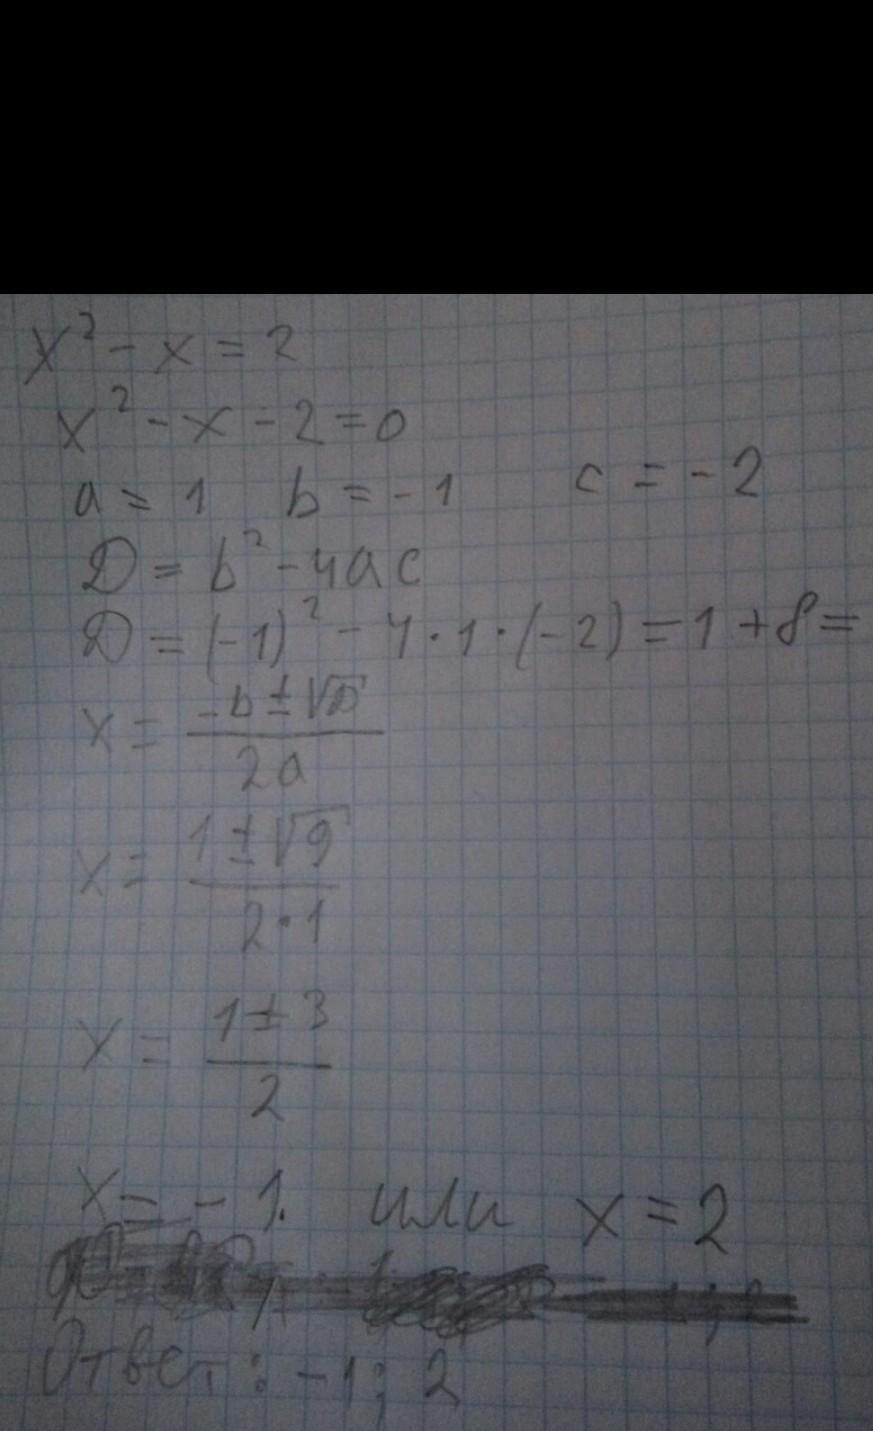 x² - x = 2
x² - x - 2 = 0
a = 1 b = -1 c = -2
D = b² - 4ac
D = (-1)² - 4·1·(-2) = 1 + 8 =
x = (-b ± √D) / 2a
x = (1 ± √9) / 2·1
x = (1 ± 3) / 2
x = -1. или x = 2
Ответ: -1; 2